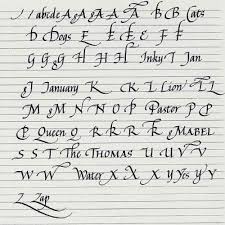 / / abcde A A A A A B B Cats
D Dogs E E E F F F
G G G H H H Inky T Jan
J January K K L Lion L
M M N N O P Pastor P
P Queen Q R R R R MABEL
S S T The THOMAS U U V V
W W Water X X X Y Yes y Y
Z Zap